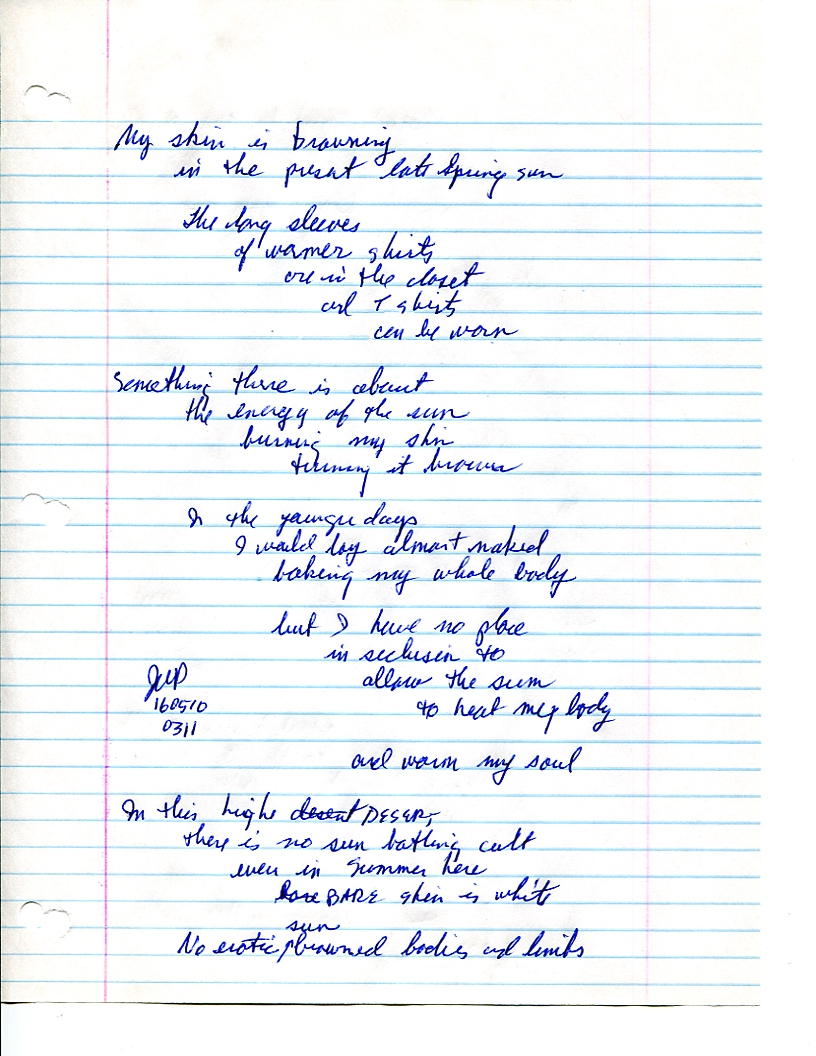 My skin is browning
in the present late Spring sun
the long sleeves
of warmer shirts
are in the closet
and T shirts
can be worn
Something there is about
the energy of the sun
burning my skin
turning it brown
In the younger days
I would lay almost naked
baking my whole body
but I have no place
in seclusion to
allow the sun
to heat my body
and warm my soul
JWP
160510
0311
In this high desert DESERT
there is no sun bathing cult
even in Summer here
bare BARE skin is white
sun
No erotic browned bodies and limbs